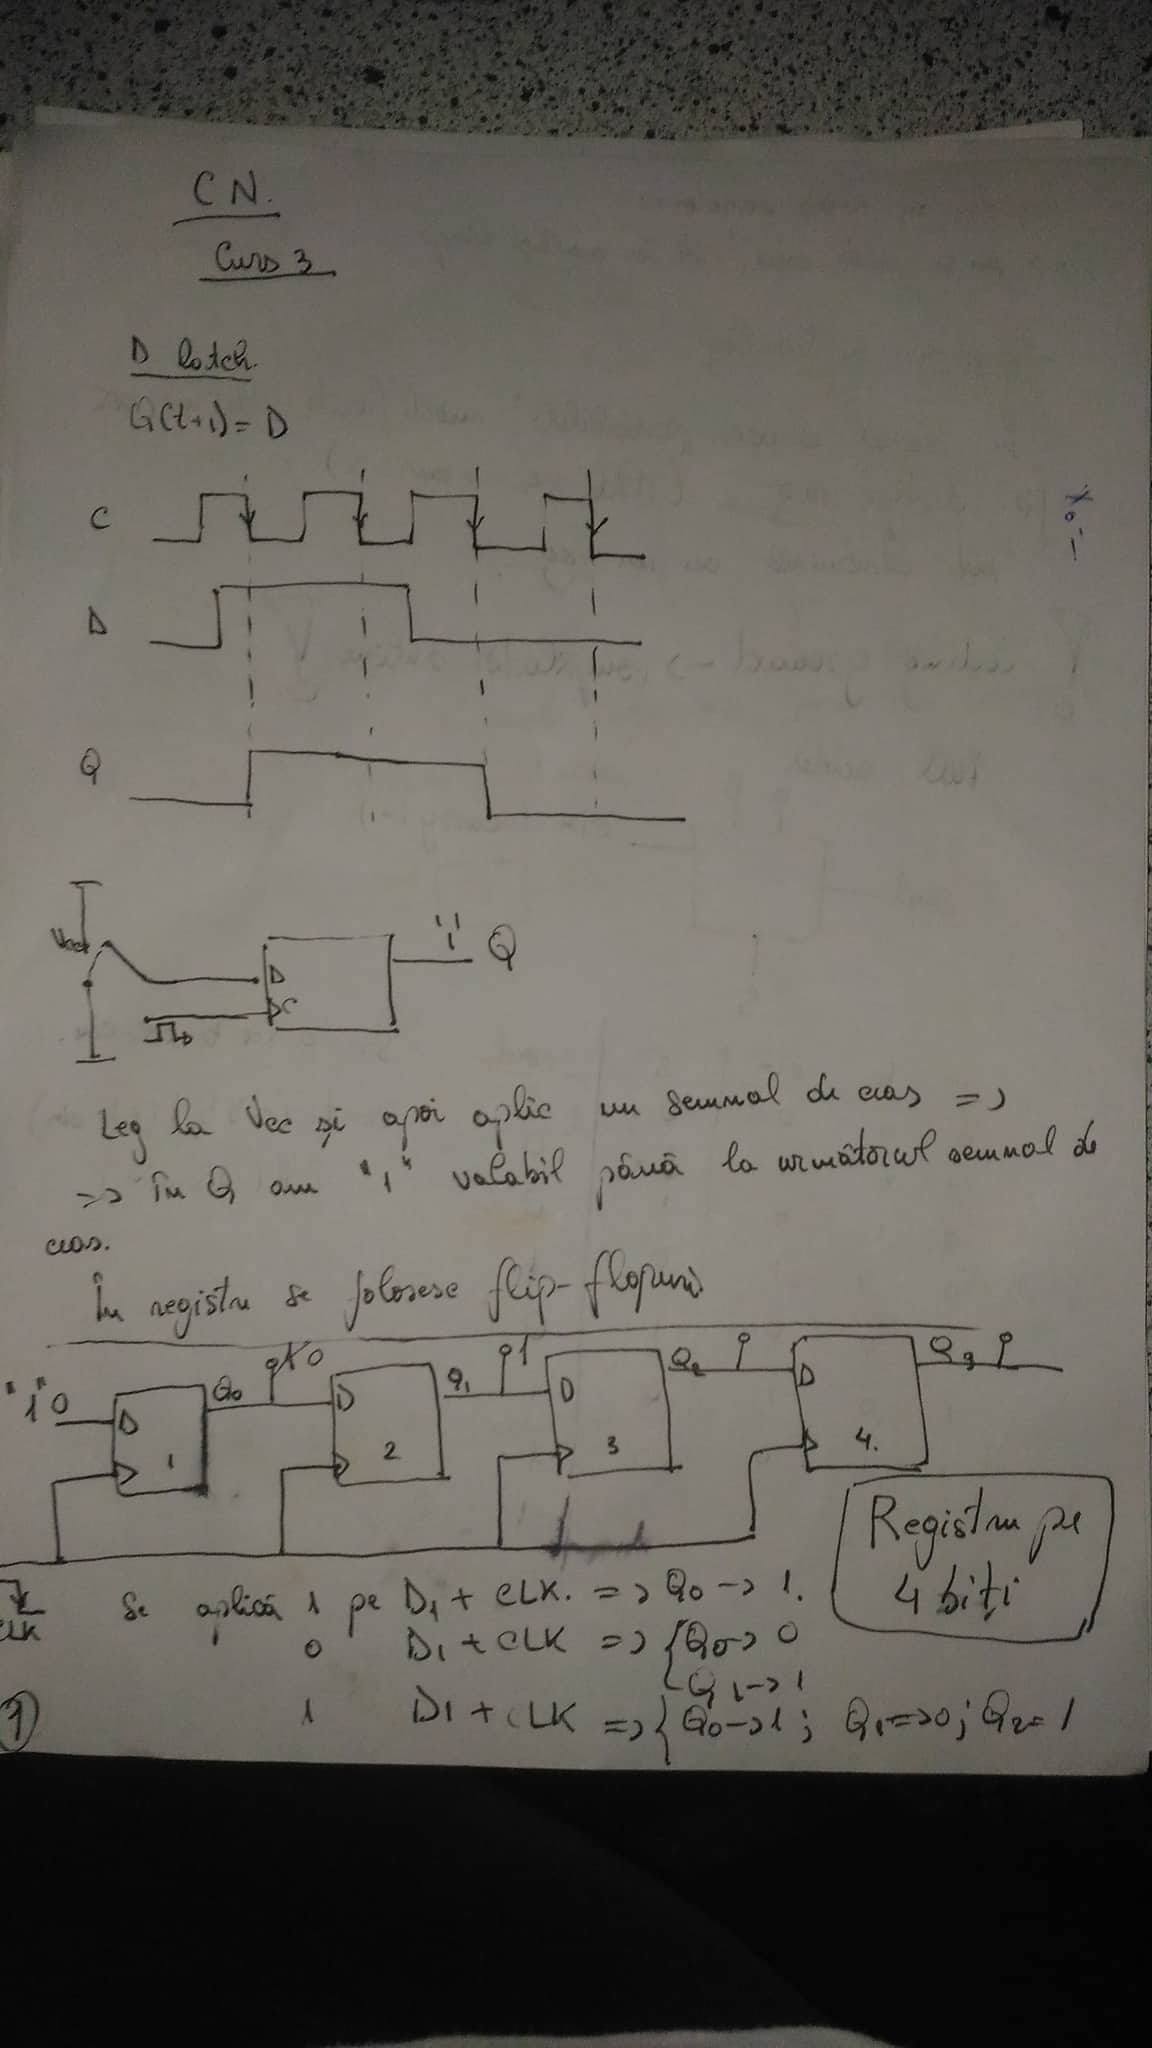 CN.
Curs 3
D latch.
Q(t+1) = D
C
D
Q
Vcc
D
C
"1" Q
Leg la Vcc și apoi aplic un semnal de ceas =>
=> în Q am "1" valabil până la următorul semnal de
ceas.
În registru se folosesc flip-flopuri
"1" 0 D 1 Q0 0 D 2 Q1 1 D 3 Q2 D 4. Q3
Registru pe
4 biți
CLK
Se aplică 1 pe D1 + CLK. => Q0 -> 1.
0 D1 + CLK => { Q0 -> 0
Q1 -> 1
1 D1 + CLK => { Q0 -> 1; Q1 => 0; Q2 = 1
1